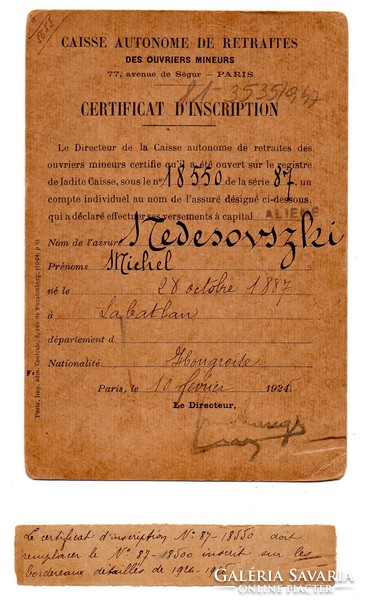 5655
CAISSE AUTONOME DE RETRAITES
DES OUVRIERS MINEURS
77, avenue de Ségur — PARIS
CERTIFICAT D'INSCRIPTION
Le Directeur de la Caisse autonome de retraites des
ouvriers mineurs certifie qu'il a été ouvert sur le registre
de ladite Caisse, sous le n° 18550 de la série 87, un
compte individuel au nom de l'assuré désigné ci-dessous,
qui a déclaré effectuer ses versements à capital ALIÉNÉ
Nom de l'assuré Medesovszki
Prénoms Michel
né le 28 octobre 1887
à Labatlan
département d
Nationalité Hongroise
Paris, le 10 février 1924.
Le Directeur,
Le certificat d'inscription N° 87-18550 doit
remplacer le N° 87-18500 inscrit sur les
bordereaux détaillés de 1924-1925
GALÉRIA SAVARIA
ONLINE PIACTÉR